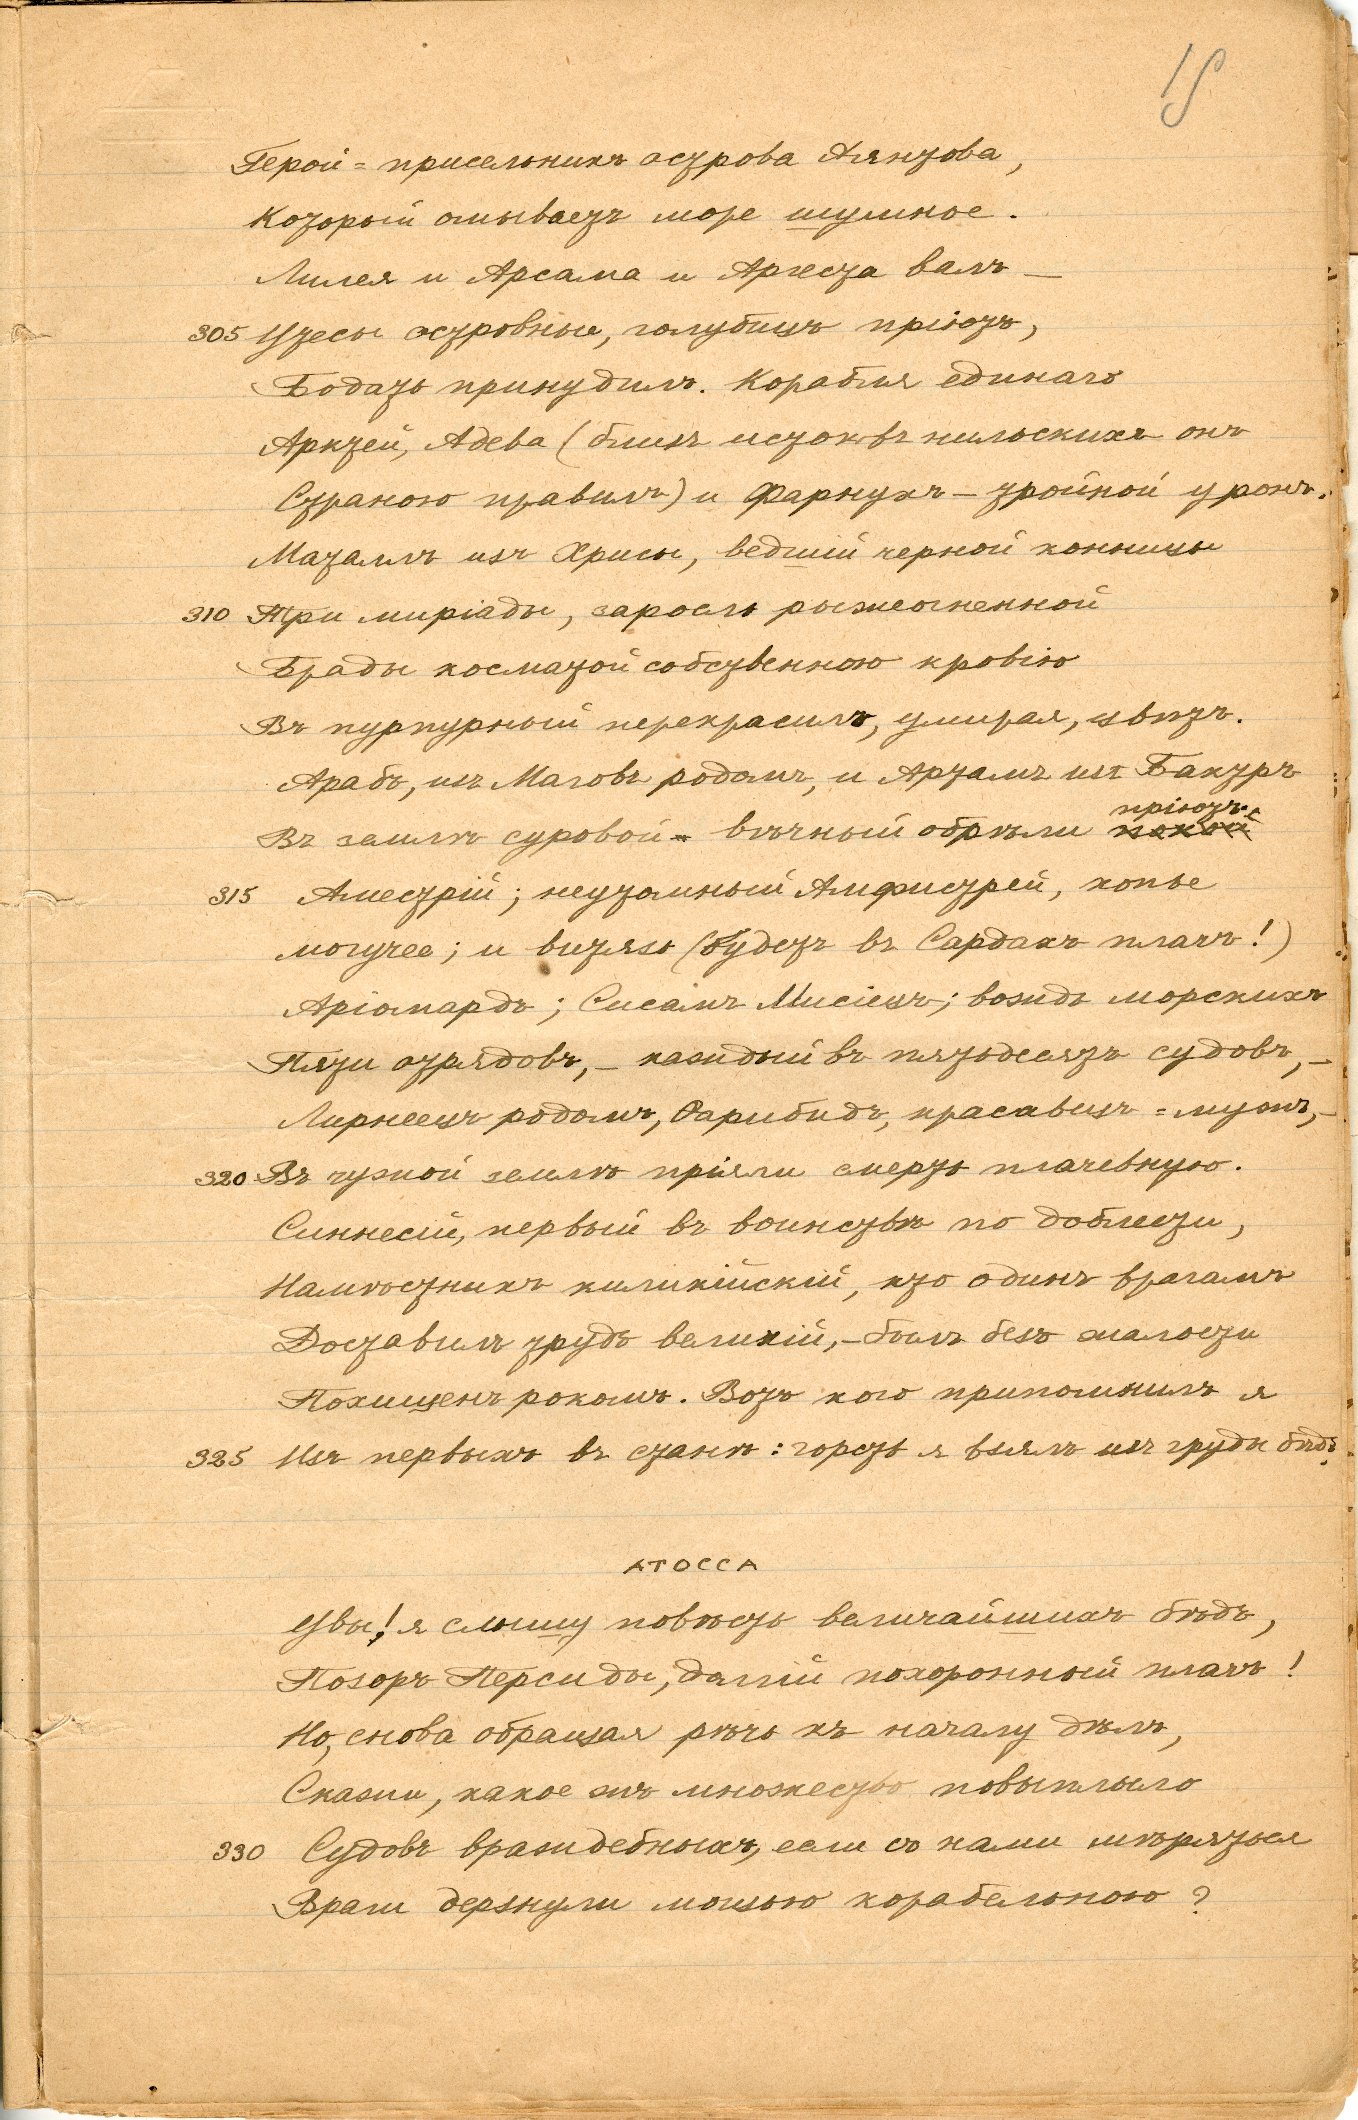 15
Герой=присельникъ острова Аянтова,
Который омываетъ море шумное.
Лилея и Арсама и Аргеста валъ —
305 Утесы островные, голубицъ пріютъ,
Бодать принудилъ. Корабля единаго
Арктей, Адева (близъ истоковъ нильскихъ онъ
Страною правилъ) и Фарнухъ — тройной уронъ.
Маталлъ изъ Хрисы, ведшій черной конницы
310 Три миріады, заросль рыжеогненной
Брады косматой собственною кровію
Въ пурпурный перекрасилъ, умирая, цвѣтъ.
Арабъ, изъ Маговъ родомъ, и Артамъ изъ Бактръ
пріютъ.
Въ землѣ суровой вѣчный обрѣли покой
315 Аместрій; неутомный Амфистрей, копье
могучее; и витязь (будетъ въ Сардахъ плачъ!)
Аріомардъ; Сисамъ Мисіецъ; вождь морскихъ
Пяти отрядовъ, — каждый въ пятьдесятъ судовъ, —
Лирнеецъ родомъ, Ѳарибидъ, красавецъ=мужъ, —
320 Въ чужой землѣ пріяли смерть плачевную.
Синнесій, первый въ воинствѣ по доблести,
Намѣстникъ киликійскій, кто одинъ врагамъ
Доставилъ трудъ великій, — былъ безъ жалости
Похищенъ рокомъ. Вотъ кого припомнилъ я
325 Изъ первыхъ въ станѣ: горсть я взялъ изъ груды бѣдъ.
АТОССА
Увы! я слышу повѣсть величайшихъ бѣдъ,
Позоръ Персиды, долгій похоронный плачъ!
Но, снова обращая рѣчь къ началу дѣлъ,
Скажи, какое жъ множество повыплыло
330 Судовъ враждебныхъ, если съ нами мѣряться
Враги дерзнули мощью корабельною?